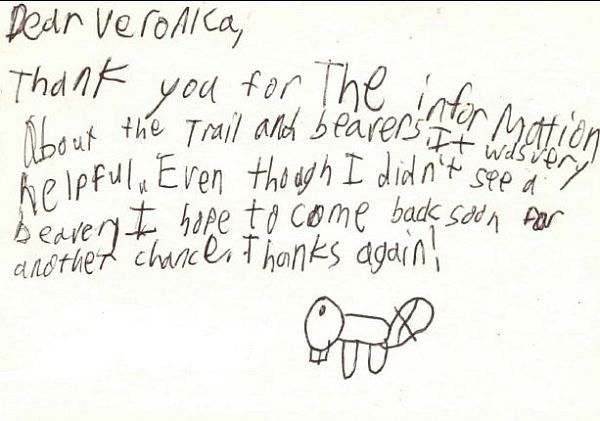 Dear Veronica,
Thank you for The information
About the Trail and beavers. It was very
helpful. Even though I didn't see a
beaver, I hope to come back soon for
another chance. Thanks again!